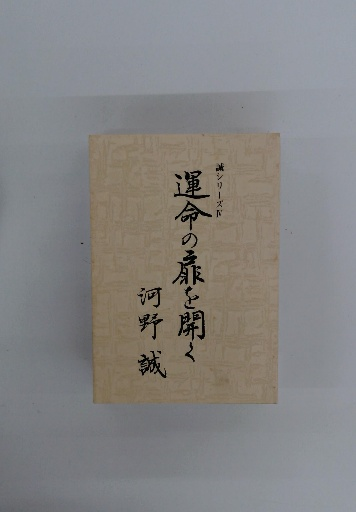 誠シリーズⅣ
運命の扉を開く
河野誠